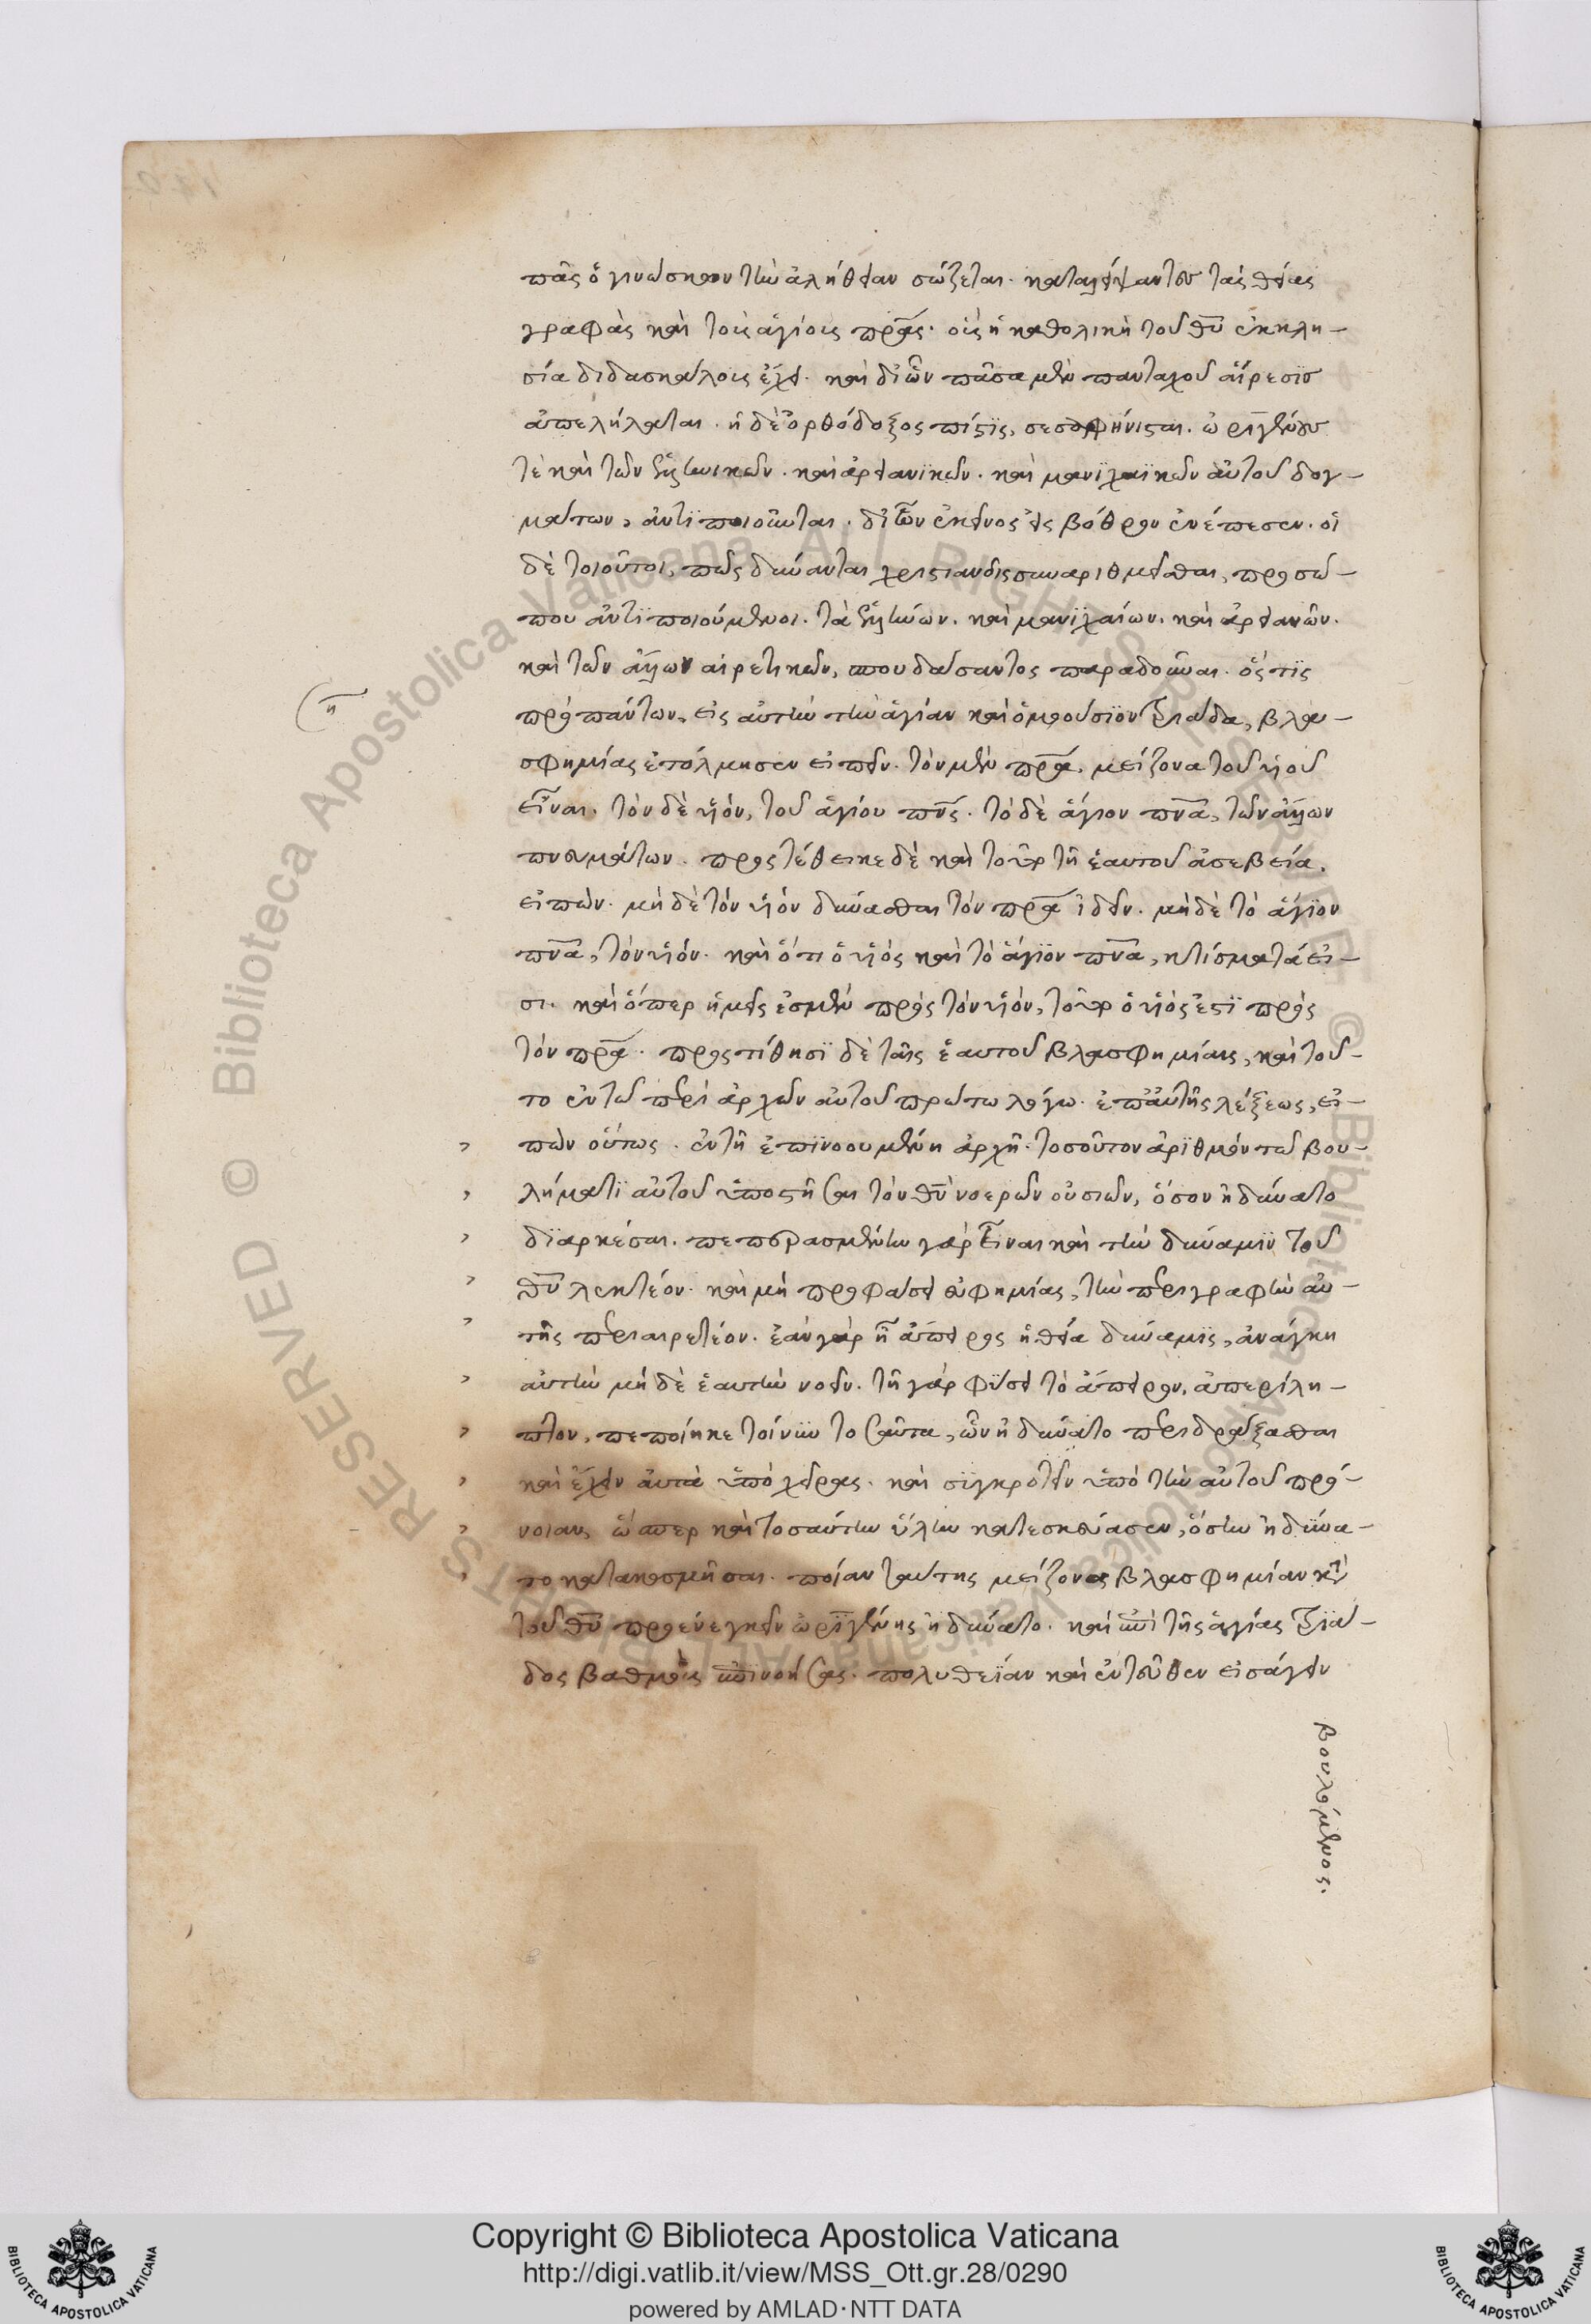 πᾶς ὁ γινώσκων τὴν ἀλήθειαν σώζεται. καταλείψαντος τὰς θείας
γραφὰς καὶ τοὺς ἁγίους πρ̅ας. οἷς ἡ καθολικὴ τοῦ θ̅υ ἐκκλη-
σία διδασκάλοις ἔχει. καὶ δι' ὧν πᾶσα μὲν πανταχοῦ αἵρεσις
ἀπελήλαται. ἡ δὲ ὀρθόδοξος πίστις, σεσαφήνισται. ὠριγένους
τὲ καὶ τῶν ἑλληνικῶν. καὶ ἀρειανϊκῶν. καὶ μανϊχαϊκῶν αὐτοῦ δογ-
μάτων, ἀντιποιοῦνται. δι' ὧν ἐκεῖνος εἰς βόθρον ἐνέπεσεν. οἱ
δὲ τοιοῦτοι, πῶς δύνανται χριστιανοῖς συναριθμεῖσθαι, προσώ-
που ἀντϊποιούμενοι. τὰ ἑλλήνων. καὶ μανϊχαίων. καὶ ἀρειανῶν.
καὶ τῶν ἄλλων αἱρετικῶν, σπουδάσαντος παραδοῦναι. ὅς τϊς
πρὸ πάντων, εἰς αὐτὴν τὴν ἁγίαν καὶ ὁμοούσϊον τριάδα, βλα-
η̅
σφημίας ἐτόλμησεν εἰπεῖν. τὸν μὲν πρ̅α, μείζονα τοῦ υἱοῦ
εἶναι. τὸν δὲ υἱόν, τοῦ ἁγίου πν̅ς. τὸ δὲ ἅγιον πν̅α, τῶν ἄλλων
πνευμάτων. προςτέθεικε δὲ καὶ τοῦτο τῆ ἑαυτοῦ ἀσεβεία,
εἰπών. μὴ δὲ τὸν υἱὸν δύνασθαι τὸν πρ̅α ἰδεῖν. μὴ δὲ τὸ ἅγϊον
πν̅α, τὸν υἱόν. καὶ ὅτι ὁ υἱὸς καὶ τὸ ἅγϊον πν̅α, κτίσματά εἰ-
σι. καὶ ὅπερ ἡμεῖς ἐσμὲν πρὸς τὸν υἱόν, τοῦτο ὁ υἱός ἐστϊ πρὸς
τὸν πρ̅α. προςτίθησϊ δὲ ταῖς ἑαυτοῦ βλασφημίαις, καὶ τοῦ-
το ἐν τῶ περὶ ἀρχῶν αὐτοῦ πρώτω λόγω. ἐπ' αὐτῆς λέξεως, εἰ-
πὼν οὕτως. ἐν τῆ ἐπϊνοουμένη ἀρχῆ. τοσοῦτον ἀρϊθμὸν τῶ βου-
λήματϊ αὐτοῦ ὑποστῆσαι τὸν θ̅ν νοερῶν οὐσιῶν, ὅσον ἠδύνατο
δϊαρκέσαι. πεπερασμένην γὰρ εἶναι καὶ τὴν δύναμϊν τοῦ
θ̅υ λεκτέον. καὶ μὴ προφάσει εὐφημίας, τὴν περιγραφὴν αὐ-
τῆς περιαιρετέον. ἐὰν γὰρ ῆ ἄπειρος ἡ θεία δύναμϊς, ἀνάγκη
αὐτὴν μὴ δὲ ἑαυτὴν νοεῖν. τῆ γὰρ φύσει τὸ ἄπειρον, ἀπερίλη-
πτον, πεποίηκε τοίνυν τοσαῦτα, ὧν ἠδύνατο περιδράξασθαι
καὶ ἔχειν αὐτὰ ὑπὸ χεῖρας. καὶ συγκροτεῖν ὑπὸ τὴν αὐτοῦ πρό-
νοιαν, ὥσπερ καὶ τοσαύτην ὕλην κατεσκεύασεν, ὅσην ἠδύνα-
το κατακοσμῆσαι. ποίαν ταύτης μείζονα βλασφημίαν κα̅τ
τοῦ θ̅υ προενεγκεῖν ὠριγένης ἠδύνατο. καὶ ἐπὶ τῆς ἁγίας τριά-
δος βαθμοὺς ἐπϊνοήσας. πολυθεΐαν καὶ ἐντεῦθεν εἰσάγειν
βουλόμενος.
Copyright © Biblioteca Apostolica Vaticana
http://digi.vatlib.it/view/MSS_Ott.gr.28/0290
powered by AMLAD·NTT DATA